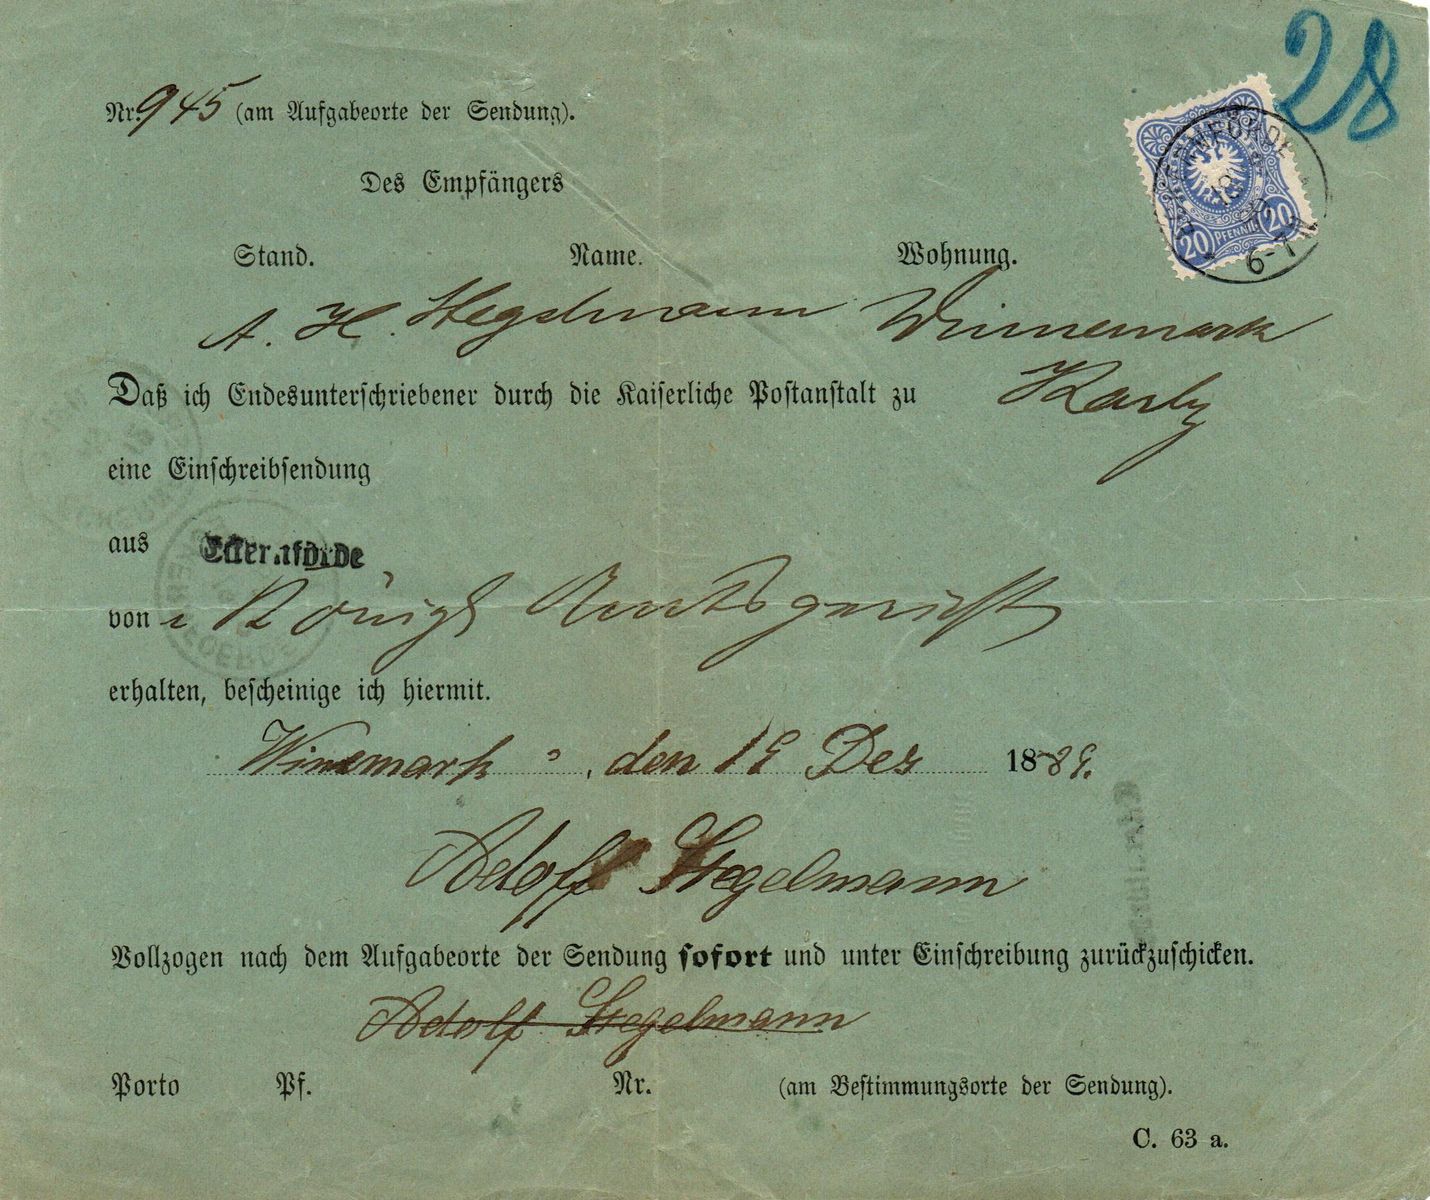 28
Nr. 945 (am Aufgabeorte der Sendung).
20 PFENNIG 20
6-7N
Des Empfängers
Stand. Name. Wohnung.
A. H. Stegelmann Winnemark
Daß ich Endesunterschriebener durch die Kaiserliche Postanstalt zu Karby
eine Einschreibsendung
aus Eckernförde
von Königl Amtsgericht
erhalten, bescheinige ich hiermit.
Winnemark, den 19 Dez 1889.
Adolf Stegelmann
Vollzogen nach dem Aufgabeorte der Sendung sofort und unter Einschreibung zurückzuschicken.
Adolf Stegelmann
Porto Pf. Nr. (am Bestimmungsorte der Sendung).
C. 63 a.